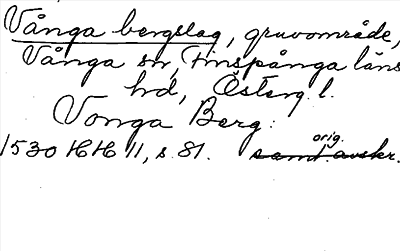 Vånga bergslag, gruvområde,
Vånga sn, Finspånga läns
hd, Österg. l.
Vonga Berg:
orig.
1530 HH 11, s. 81. samt. avskr.